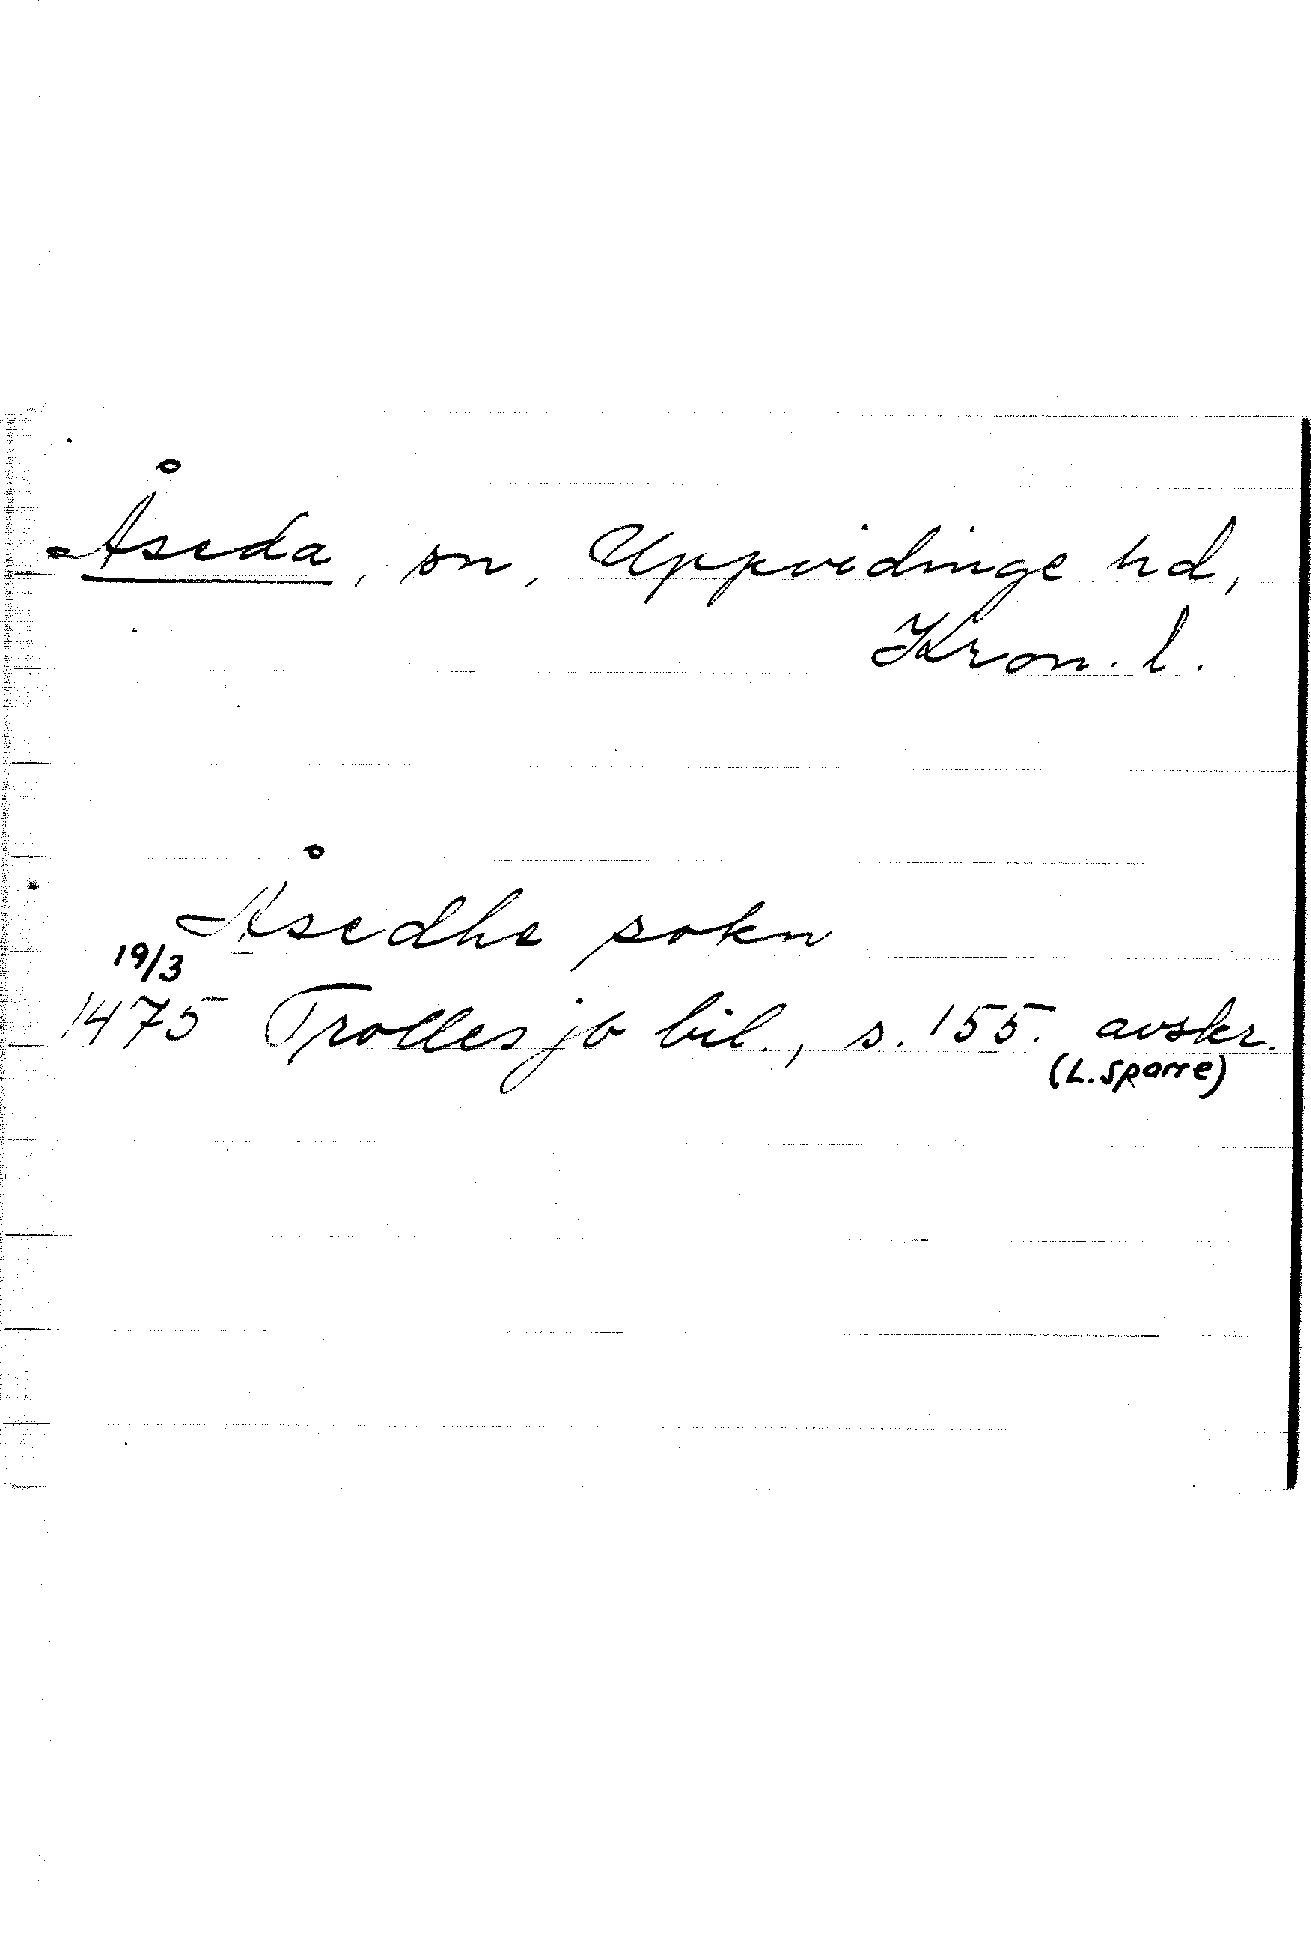 Åseda, sn, Uppvidinge hd,
Kron. l.
Åsedhe sokn
19/3
1475 Trolles jb bil., s. 155. avskr.
(L. Sparre)